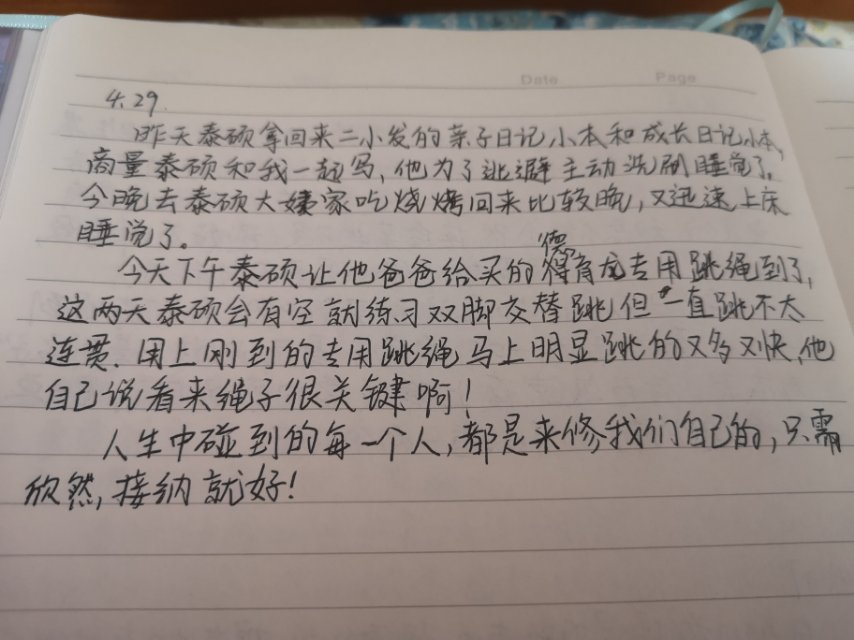 Date Page
4.29.
昨天泰硕拿回来二小发的亲子日记小本和成长日记小本,
商量泰硕和我一起写,他为了逃避主动洗刷睡觉了。
今晚去泰硕大姨家吃烧烤回来比较晚,又迅速上床
睡觉了。
德
今天下午泰硕让他爸爸给买的得育龙专用跳绳到了,
这两天泰硕会有空就练习双脚交替跳但一直跳不太
连贯.用上刚到的专用跳绳马上明显跳的又多又快,他
自己说看来绳子很关键啊!
人生中碰到的每一个人,都是来修我们自己的,只需
欣然,接纳就好!